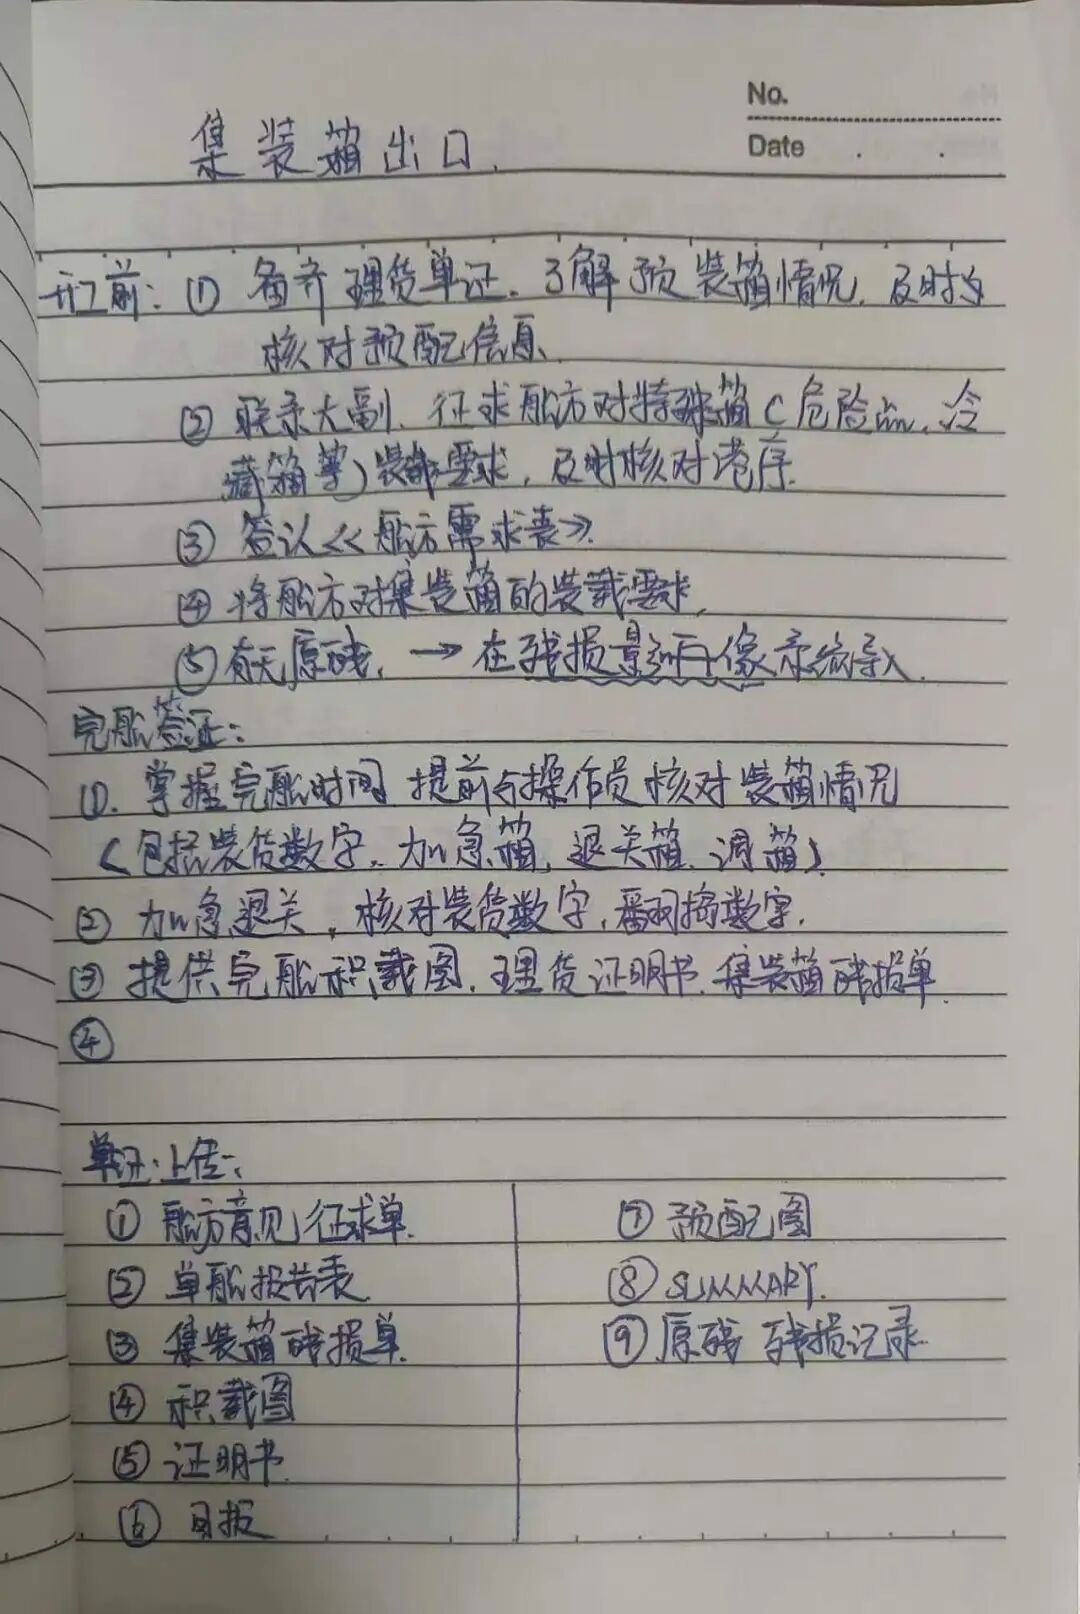 No.
Date
集装箱出口.
开工前: ① 备齐理货单证. 了解预装箱情况, 及时与
核对预配信息.
② 联系大副. 征求船方对特殊箱(危险品、冷
藏箱等)装载需求, 及时核对港序.
③ 签认《船方需求表》.
④ 将船方对集装箱的装载要求.
⑤ 有无原残. → 在残损影像系统导入.
完船签证:
①. 掌握完船时间 提前与操作员核对装箱情况
(包括装货数字. 加急箱, 退关箱. 调箱)
② 加急退关, 核对装货数字, 翻捣数字.
③ 提供完船积载图. 理货证明书. 集装箱残损单
④
单证上传:
① 船方意见征求单.
② 单船报告表
③ 集装箱残损单.
④ 积载图
⑤ 证明书
⑥ 日报
⑦ 预配图
⑧ SUMMARY.
⑨ 原残 残损记录.